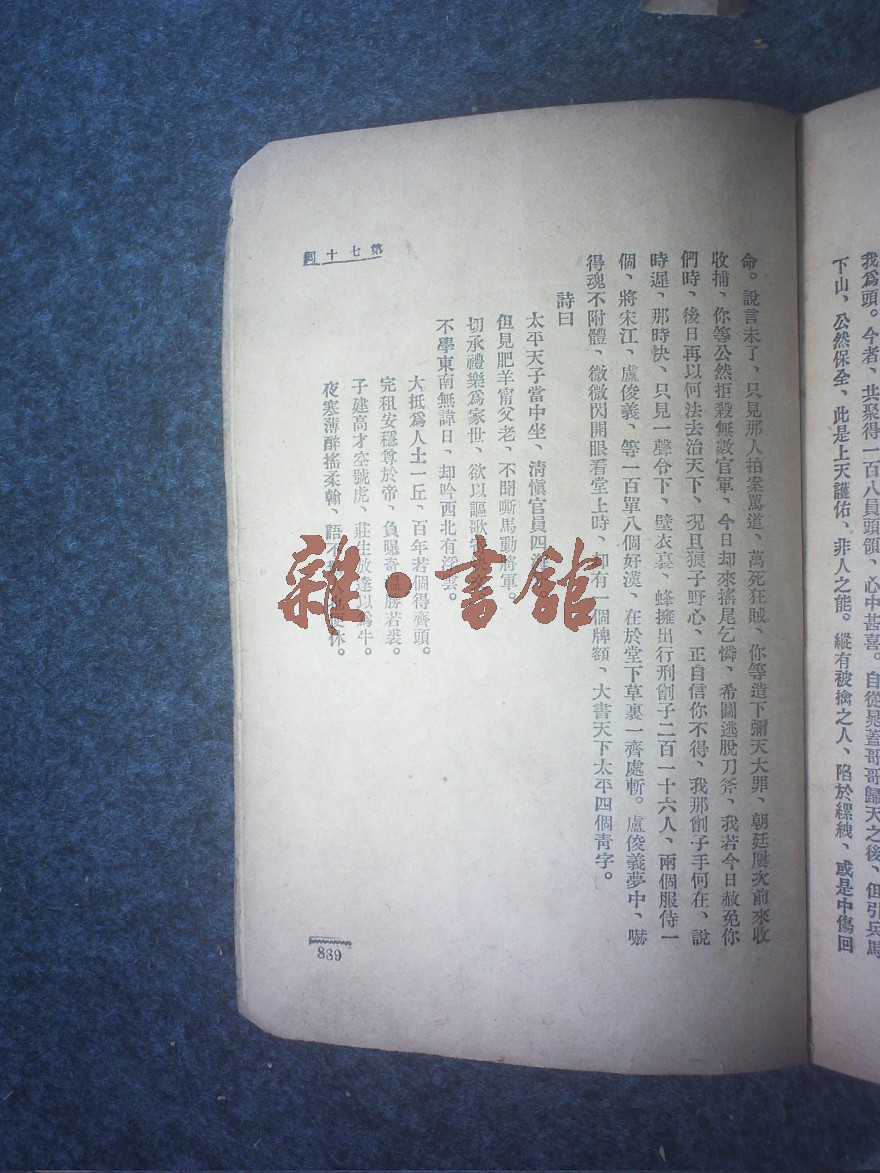 我爲頭。今者、共聚得一百八員頭領、心中甚喜。自從晁蓋哥哥歸天之後、但引兵馬
下山、公然保全、此是上天護佑、非人之能。縱有被擒之人、陷於縲絏、或是中傷回
命。說言未了、只見那人拍案罵道、萬死狂賊、你等造下彌天大罪、朝廷屢次前來收
收捕、你等公然拒殺無數官軍、今日却來搖尾乞憐、希圖逃脫刀斧、我若今日赦免你
們時、後日再以何法去治天下、況且狼子野心、正自信你不得、我那劊子手何在、說
時遲、那時快、只見一聲令下、壁衣裏、蜂擁出行刑劊子二百一十六人、兩個服侍一
個、將宋江、盧俊義、等一百單八個好漢、在於堂下草裏一齊處斬。盧俊義夢中、嚇
得魂不附體、微微閃開眼看堂上時、却有一個牌額、大書天下太平四個靑字。
詩曰
太平天子當中坐、淸愼官員四海
但見肥羊甯父老、不聞嘶馬動將軍。
切承禮樂爲家世、欲以謳歌
不學東南無諱日、却吟西北有浮雲。
大抵爲人土一丘、百年若個得齊頭。
完租安穩尊於帝、負曝奇溫勝若裘。
子建高才空號虎、莊生放達以爲牛。
夜寒薄醉搖柔翰、語不 休。
第七十回
839
雜·書館